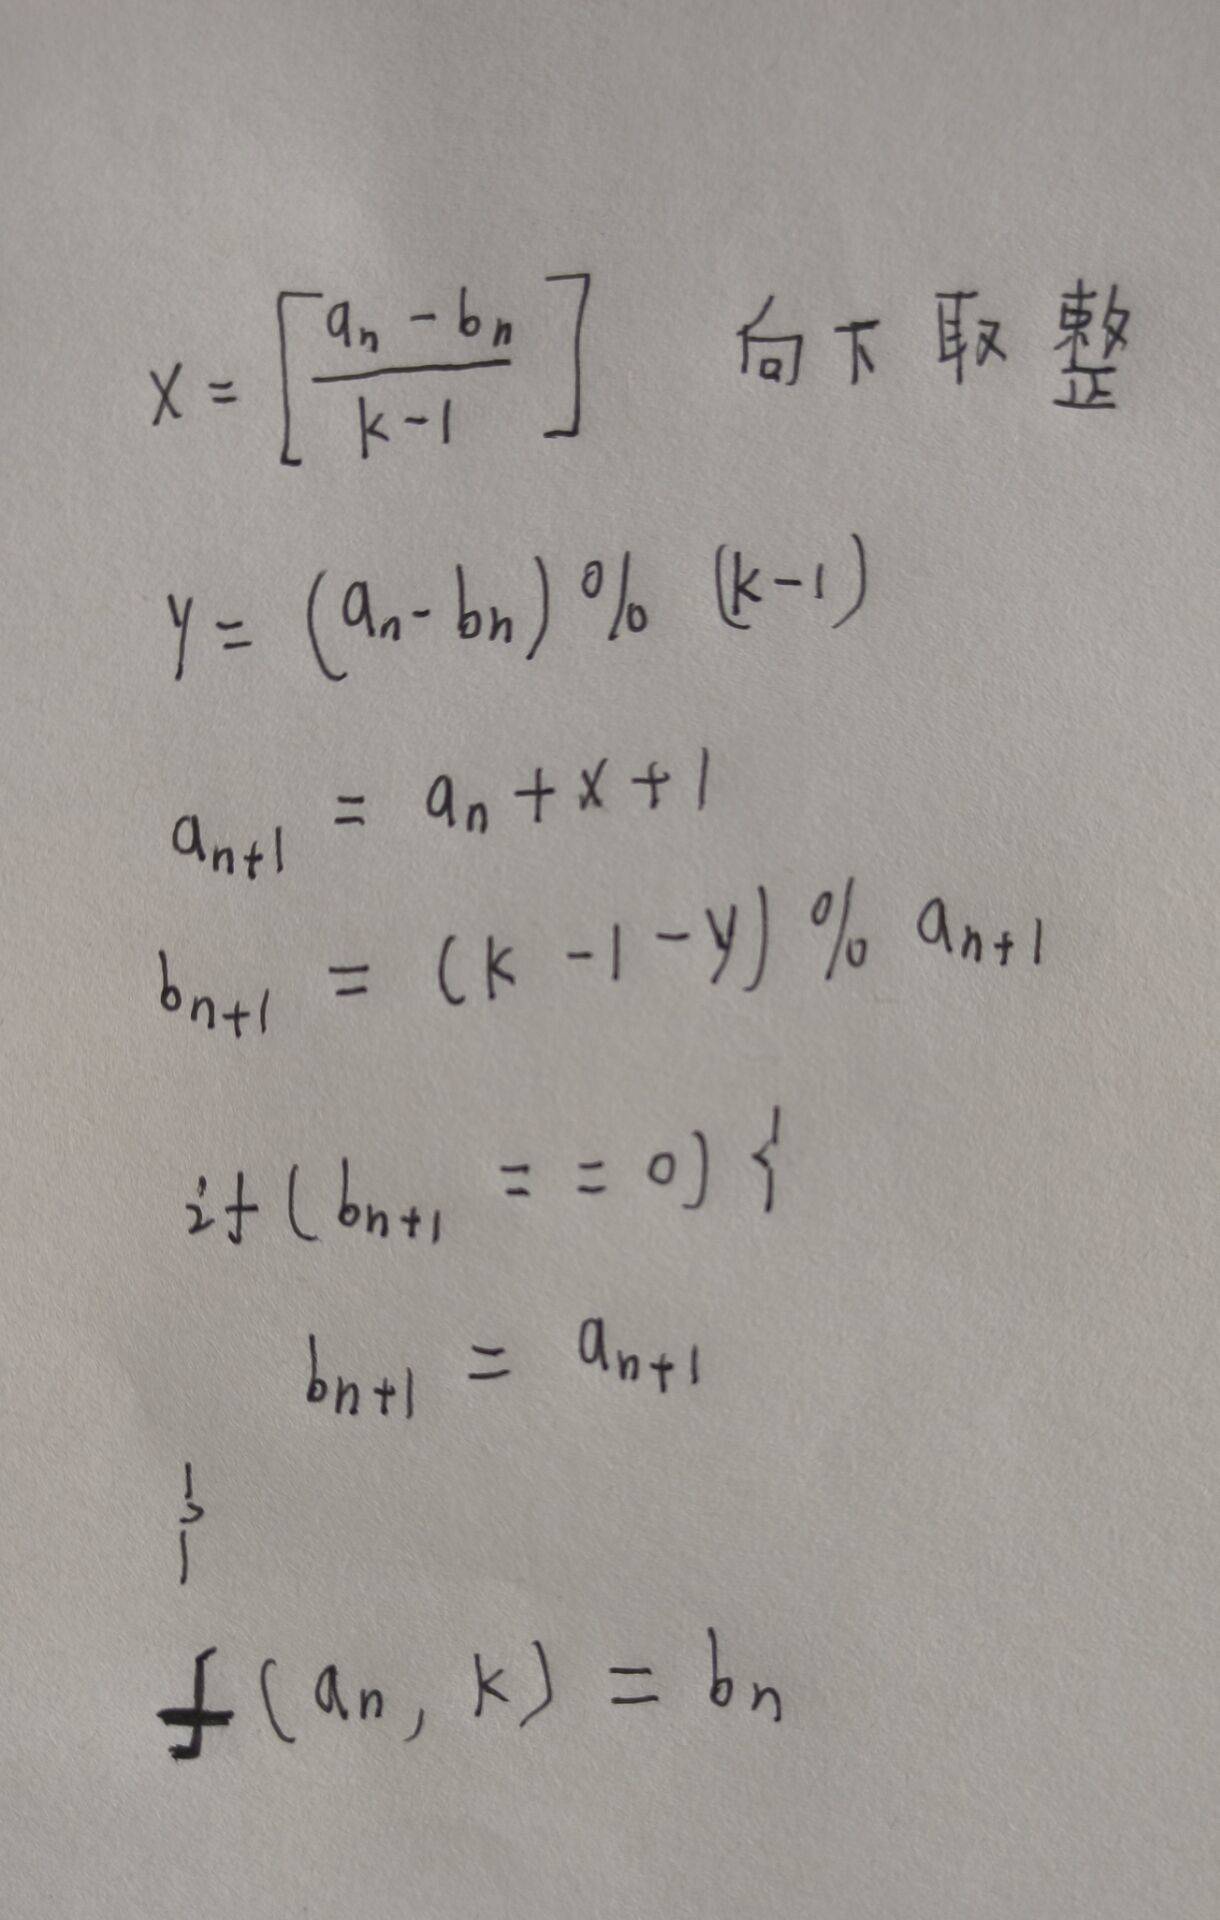 x = [(aₙ - bₙ)/(k-1)] 向下取整
y = (aₙ - bₙ) % (k-1)
aₙ₊₁ = aₙ + x + 1
bₙ₊₁ = (k - 1 - y) % aₙ₊₁
if (bₙ₊₁ == 0) {
bₙ₊₁ = aₙ₊₁
}
f(aₙ, k) = bₙ